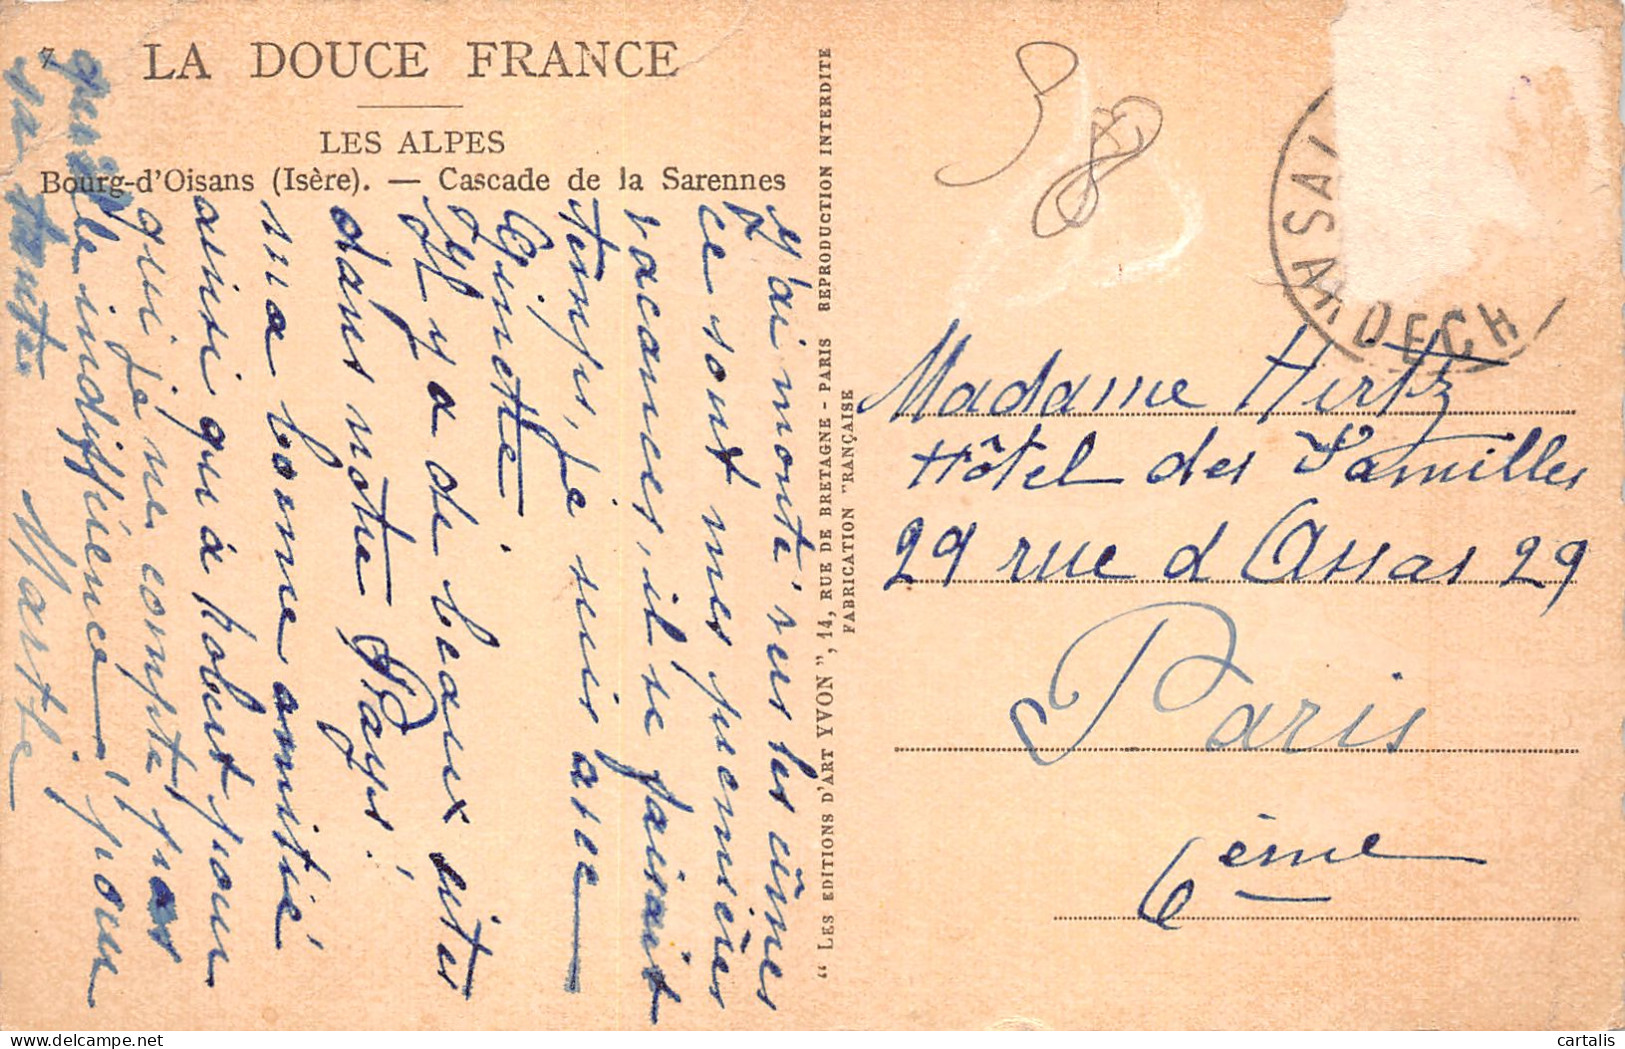 7 LA DOUCE FRANCE
LES ALPES
Bourg-d'Oisans (Isère). — Cascade de la Sarennes
J'ai monté sur les cîmes
ce sont mes premières
vacances, il se faisait
temps, je suis avec
Ginette.
Il y a de beaux sites
dans notre Pays!
ma bonne amitié
ainsi qu'à Robert pour
qui je ne compte pas
qu'il
indifférence pour
sa tante
Marthe
" LES EDITIONS D'ART YVON", 14, RUE DE BRETAGNE - PARIS REPRODUCTION INTERDITE
FABRICATION FRANÇAISE
58
SA
ARDECH
Madame Hirtz
Hôtel des Familles
29 rue d Assas 29
Paris
6ème
cartalis